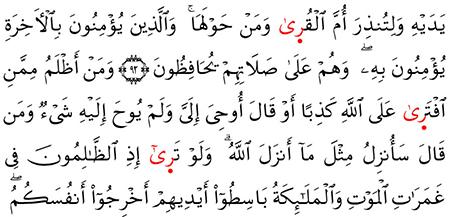 يَدَيْهِ وَلِتُنذِرَ أُمَّ ٱلْقُرِىٰ وَمَنْ حَوْلَهَاۚ وَٱلَّذِينَ يُؤْمِنُونَ بِٱلْأَخِرَةِ
يُؤْمِنُونَ بِهِۦۖ وَهُمْ عَلَىٰ صَلَاتِهِمْ يُحَافِظُونَ ۝٩٣ وَمَنْ أَظْلَمُ مِمَّنِ
ٱفْتَرِىٰ عَلَى ٱللَّهِ كَذِبًا أَوْ قَالَ أُوحِىَ إِلَىَّ وَلَمْ يُوحَ إِلَيْهِ شَىْءٌ وَمَن
قَالَ سَأُنزِلُ مِثْلَ مَآ أَنزَلَ ٱللَّهُۗ وَلَوْ تَرِىٰٓ إِذِ ٱلظَّٰلِمُونَ فِى
غَمَرَٰتِ ٱلْمَوْتِ وَٱلْمَلَٰٓئِكَةُ بَاسِطُوٓا۟ أَيْدِيهِمْ أَخْرِجُوٓا۟ أَنفُسَكُمُۖ